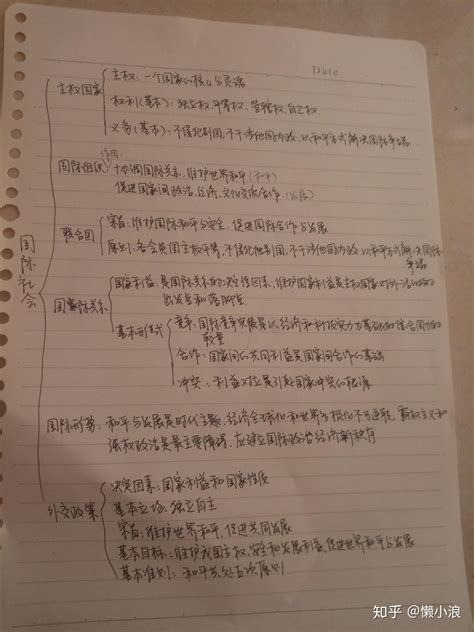 Date
主权国家
主权:一个国家的核心
权利(基本):独立权、平等权、管辖权、自卫权
义务(基本):不侵犯别国、不干涉他国内政、以和平方式解决国际争端
国际组织
作用:
协调国际关系,维护世界和平
促进国家间政治、经济、文化交流合作
国际社会
联合国
宗旨:维护国际和平与安全,促进国际合作与发展
原则:各会员国主权平等,不侵犯他国,不干涉他国内政,以和平方式解决国际争端
国家际关系
国家利益:是国际关系的决定性因素,维护国家利益是主权国家对外活动的
出发点和落脚点
基本形式
竞争:国际竞争实质是以经济和科技实力为基础的综合国力的
较量
合作:国家间的共同利益是国家间合作的基础
冲突:利益对立是引起国家冲突的根源
国际形势:和平与发展是时代主题,经济全球化和世界多极化不可逆转,霸权主义和
强权政治是最主要障碍,应建立国际政治经济新秩序
外交政策
决定因素:国家利益和国家性质
基本立场:独立自主
宗旨:维护世界和平,促进共同发展
基本目标:维护我国主权、安全和发展利益,促进世界和平与发展
基本准则:和平共处五项原则
知乎 @懒小浪